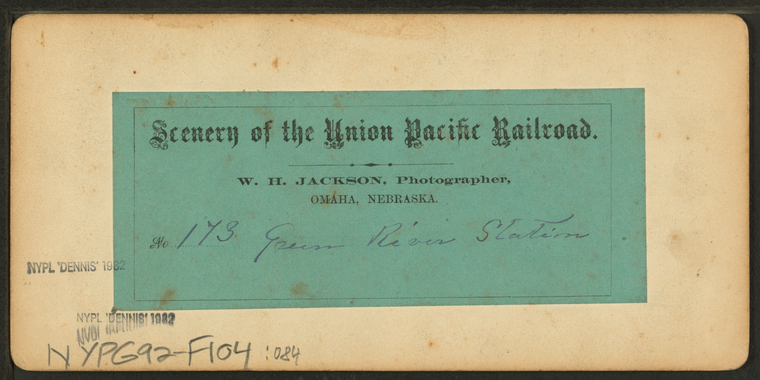 Scenery of the Union Pacific Railroad.
W. H. JACKSON, Photographer,
OMAHA, NEBRASKA.
No 173 Green River Station.
NYPL 'DENNIS' 1982
NYPL 'DENNIS' 1982
NYPG92-F104 :084